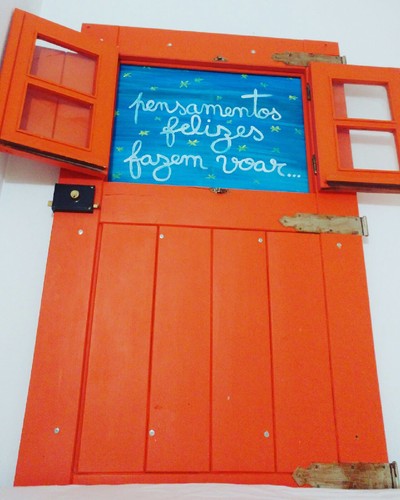 pensamentos
felizes
fazem voar...